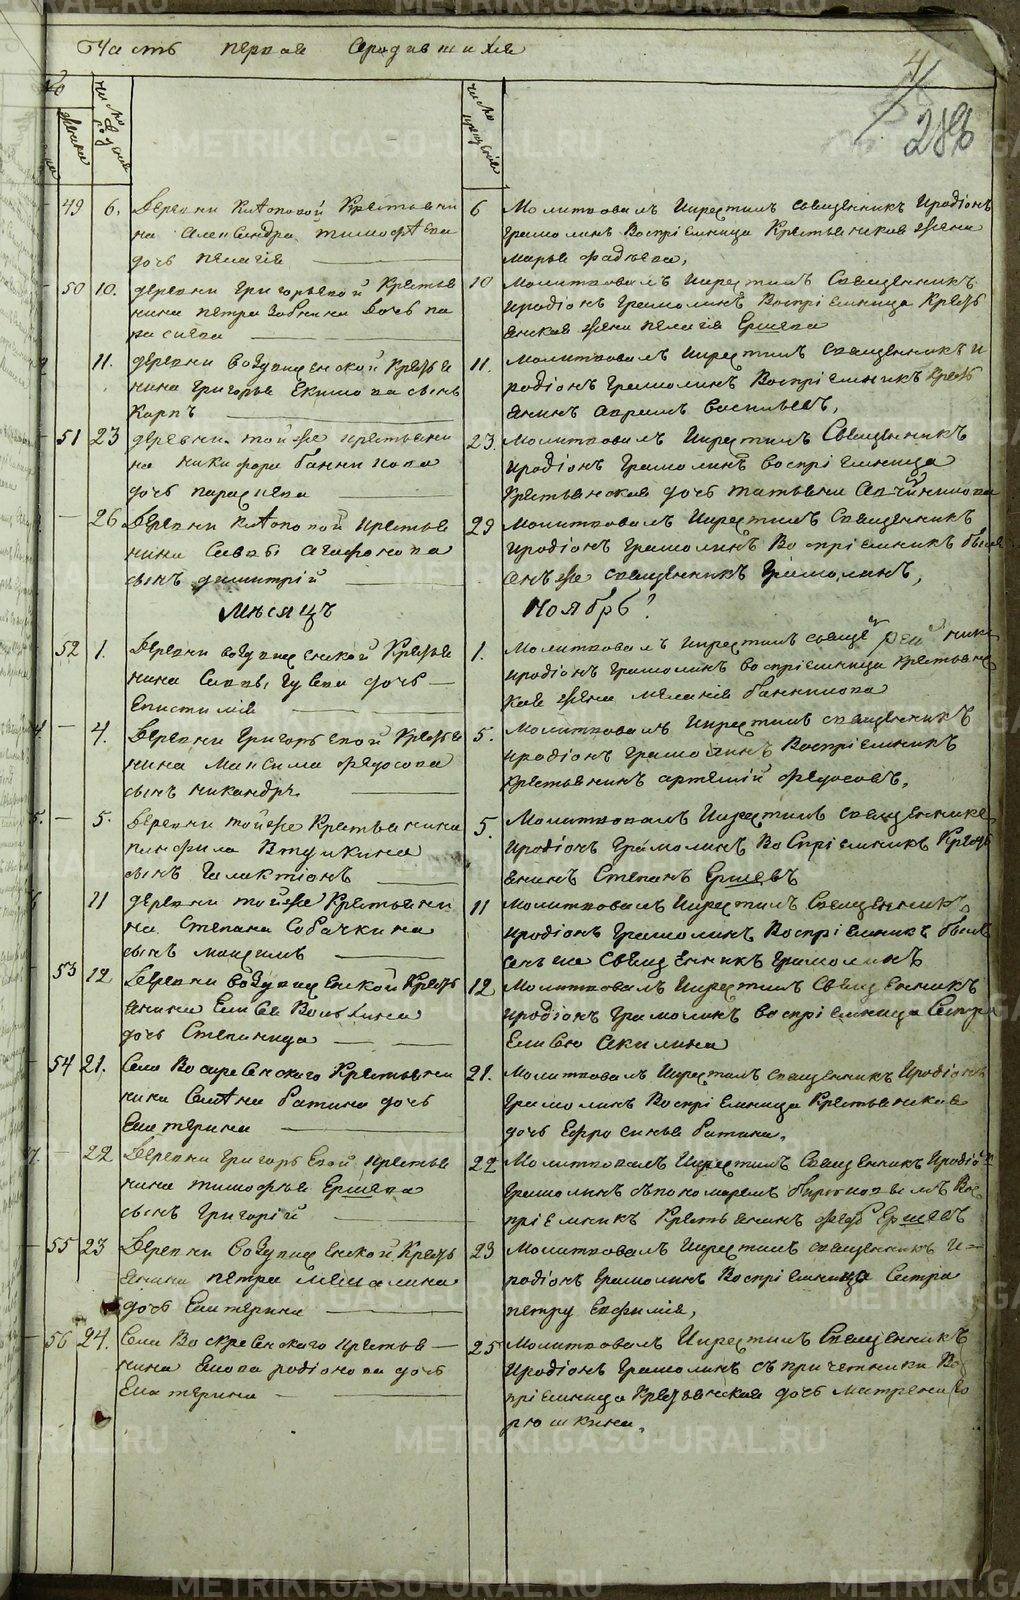 Часть первая о родившихся
4
286
№
женска
число рожденія
число крещенія
49 6. Деревни Китоповой Крестьяни
на Александра Тимофѣева
дочь пелагія
6 Молитвовалъ Икрестилъ священникъ Иродіонъ
Грамолинъ Воспріемница Крестьянская жена
марья фадѣева,
50 10. деревни Григорьевой Крестья
нина петра дочь па
раскева
10 Молитвовалъ Икрестилъ Священникъ
Иродіонъ Грамолинъ Воспріемница Кресть
янская жена пелагія Ершева
11. деревни воздвиженской Кресть я
нина Григорья Екимова сынъ
Карпъ
11. Молитвовалъ Икрестилъ Священникъ И
родіонъ Грамолинъ Воспріемникъ Кресть
янинъ Аврамъ Васильевъ,
51 23 деревни тойже крестьяни
на никифора банникова
дочь параскева
23. Молитвовалъ Икрестилъ Священникъ
Иродіонъ Грамолинъ воспріемница
Крестьянская дочь татьяна
26 Деревни Китоповой Крестья
нина Савы Агафонова
сынъ димитрій
29 Молитвовалъ Икрестилъ Священникъ
Иродіонъ Грамолинъ Воспріемникъ былъ
онъ же священникъ Грамолинъ,
Мѣсяцъ Ноябрь
52 1. Деревни воздвиженской Кресть я
нина Савы Гусева дочь
Епистимія
1. Молитвовалъ Икрестилъ свяще
иродіонъ Грамолинъ воспріемница крестьянс
кая жена меланія банникова
4. Деревни Григорьевой Крестья
нина Максима Федосова
сынъ никандръ
5. Молитвовалъ Икрестилъ священникъ
иродіонъ Грамолинъ Воспріемникъ
крестьянинъ артемій Федосовъ,
5. Деревни тойже Крестьянина
панфила Втушкина
сынъ Галактіонъ
5. Молитвовалъ Икрестилъ священникъ
Иродіонъ Грамолинъ Воспріемникъ Кресть
янинъ Степанъ Ершевъ
11 деревни тойже Крестьяни
на Степана Собачкина
сынъ максимъ
11 Молитвовалъ Икрестилъ Священникъ
Иродіонъ Грамолинъ Воспріемникъ былъ
онъ же Священникъ Грамолинъ
53 12 Деревни воздвиженской Кресть
янина Елисея дочь Степанида
12 Молитвовалъ Икрестилъ Священникъ
Иродіонъ Грамолинъ воспріемница Сестра
Елисею Акилина
54 21. Села Воскресенского Крестьяни
нина батина дочь
Екатерина
21. Молитвовалъ Икрестилъ священникъ Иродіонъ
Грамолинъ Воспріемница Крестьянская
дочь Ефросинья батина,
22 Деревни Григорьевой Крестья
нина тимофѣя Ершева
сынъ Григорій
22 Молитвовалъ Икрестилъ Священникъ Иродіо
Грамолинъ съ пономаремъ Вос
пріемникъ Крестьянинъ Ершевъ
55 23 Деревни воздвиженской Кресть
янина петра
дочь Екатерина
23 Молитвовалъ Икрестилъ священникъ И
родіонъ Грамолинъ Воспріемница Сестра
петру Евфимія,
56 24. Села Воскресенского Крестья
нина родіонова дочь
Екатерина
25 Молитвовалъ Икрестилъ Священникъ
Иродіонъ Грамолинъ съ причетники Во
пріемница Крестьянская дочь матрена
METRIKI.GASO-URAL.RU